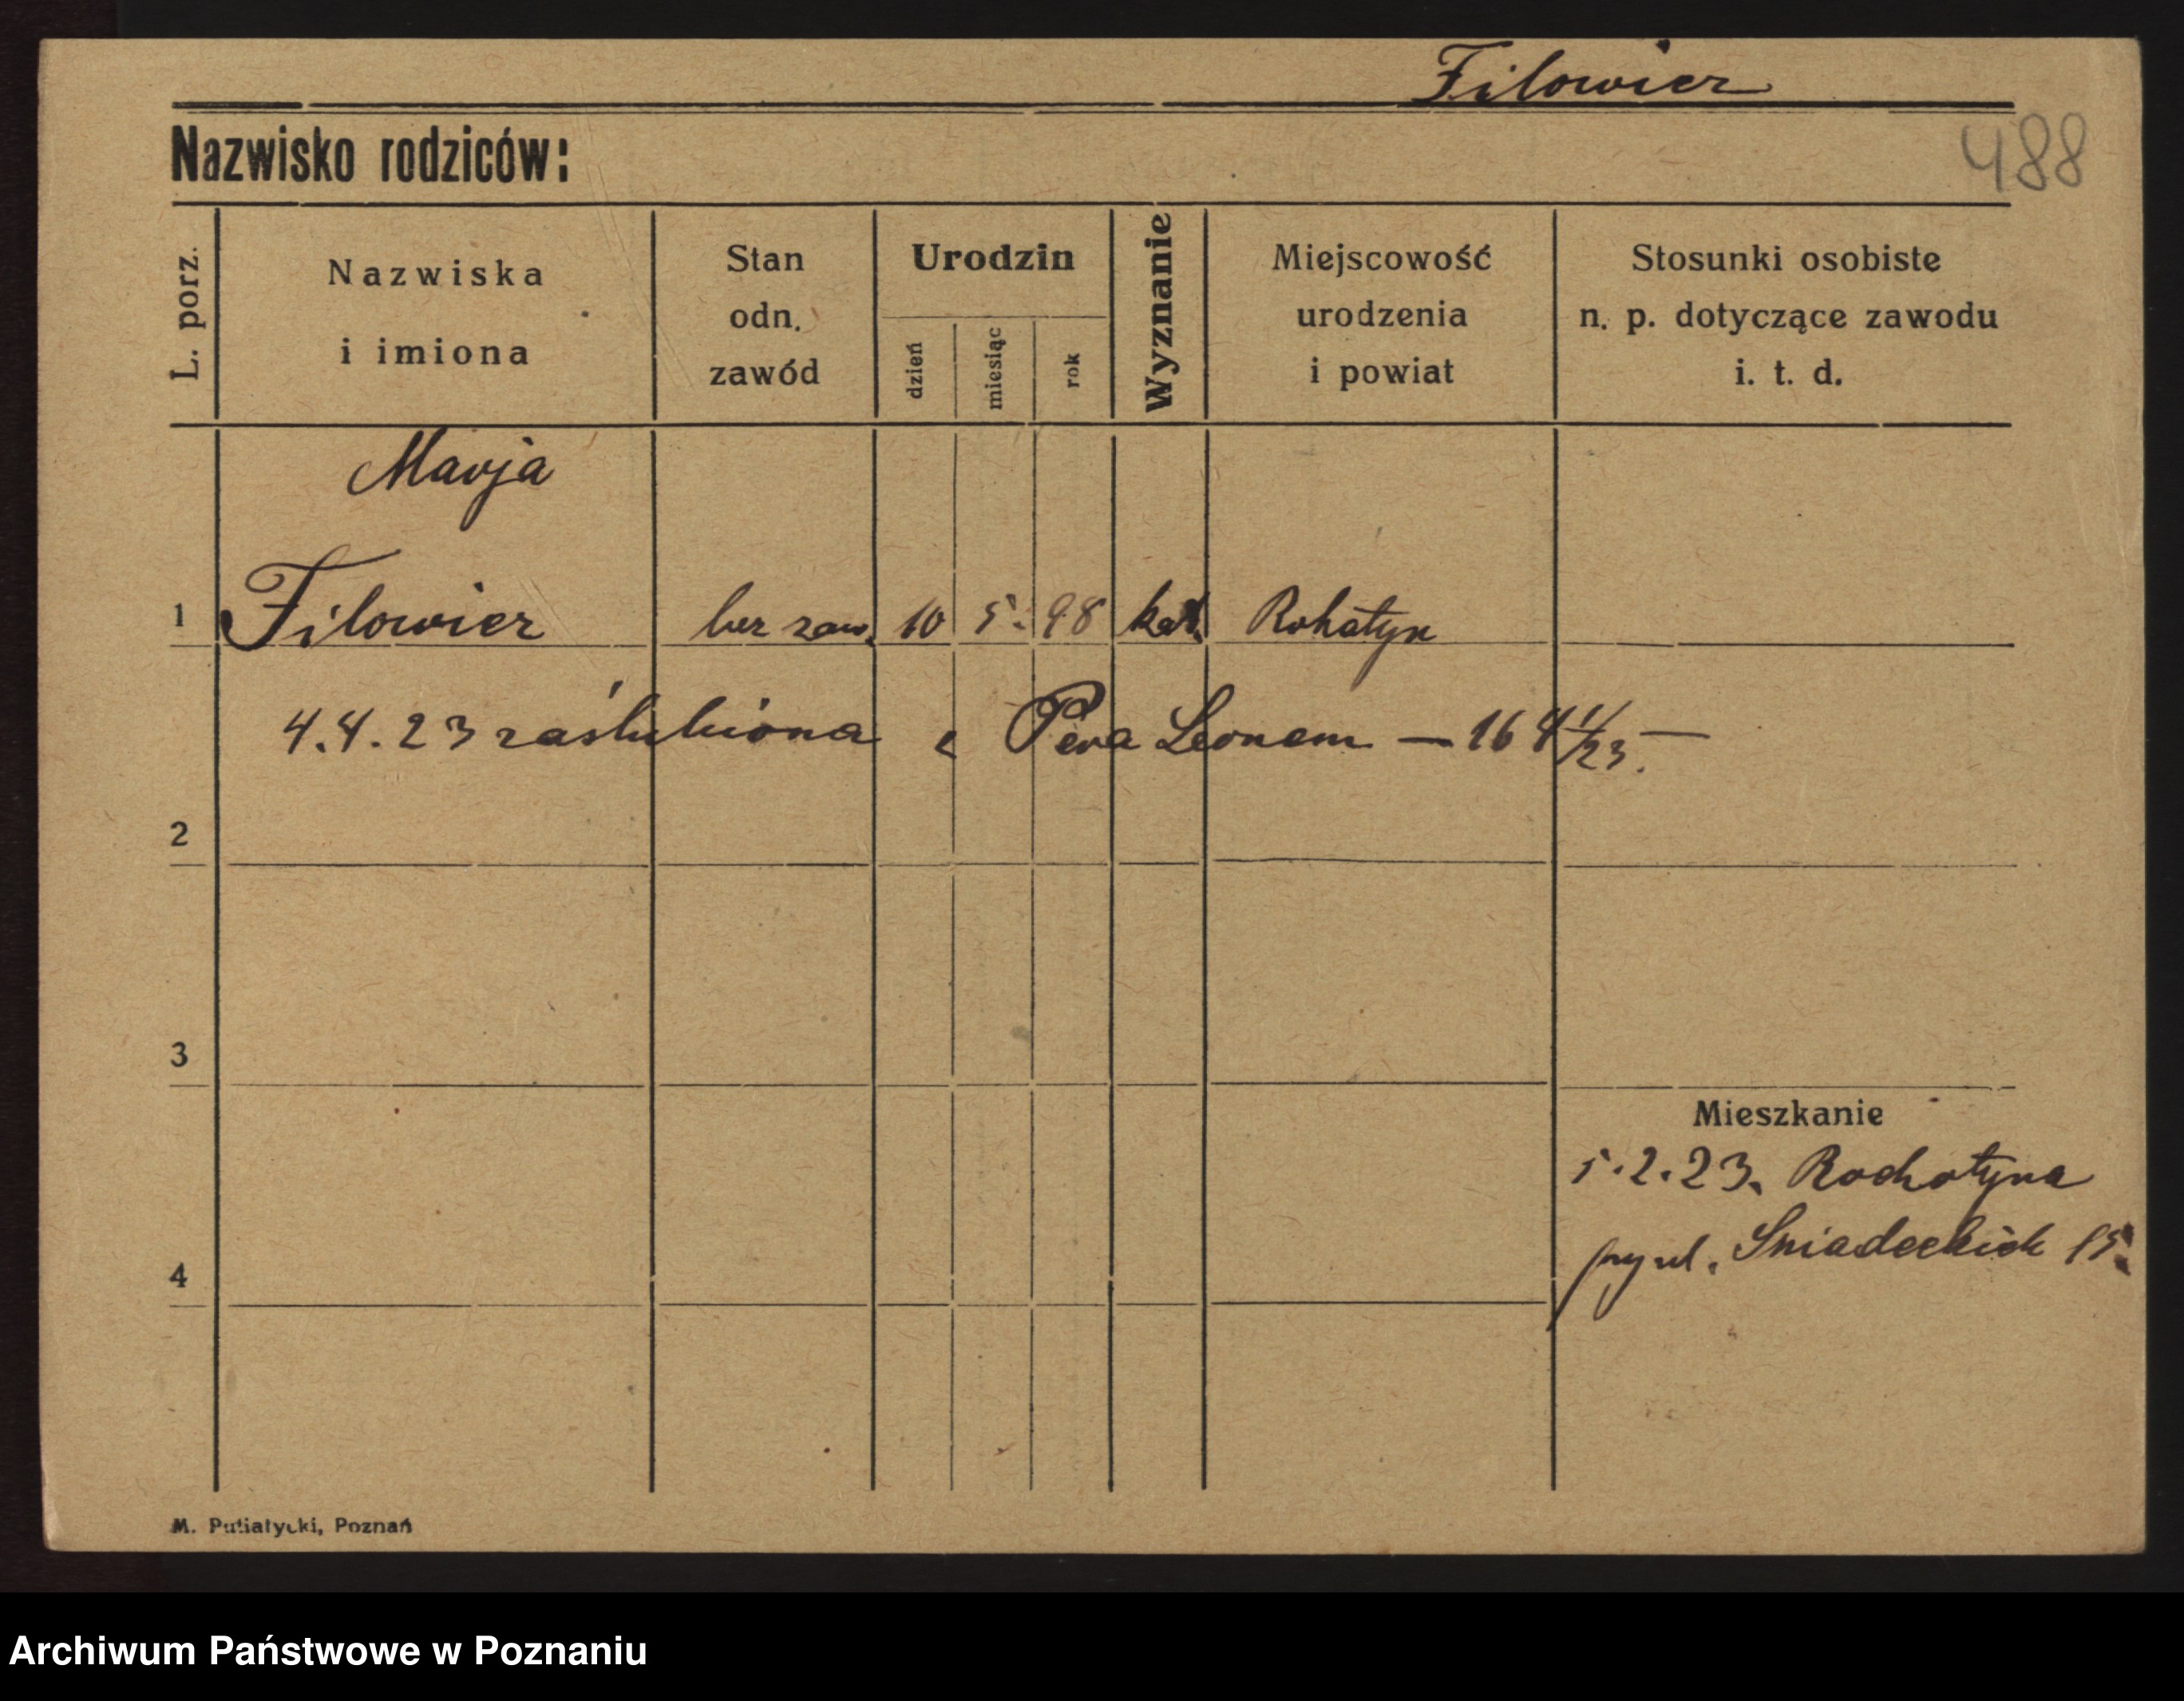 Filowicz
Nazwisko rodziców:
488
L. porz.
Nazwiska
i imiona
Stan
odn.
zawód
Urodzin
dzień
miesiąc
rok
Wyznanie
Miejscowość
urodzenia
i powiat
Stosunki osobiste
n. p. dotyczące zawodu
i. t. d.
Marja
1 Filowicz bez zaw. 10 5. 98 kat. Rohatyn
4.4.23 zaślubiona z Leonem — 
2
3
Mieszkanie
5.2.23. Rochatyna
ul. Sniadeckich 15.
4
M. Putiatycki, Poznań
Archiwum Państwowe w Poznaniu